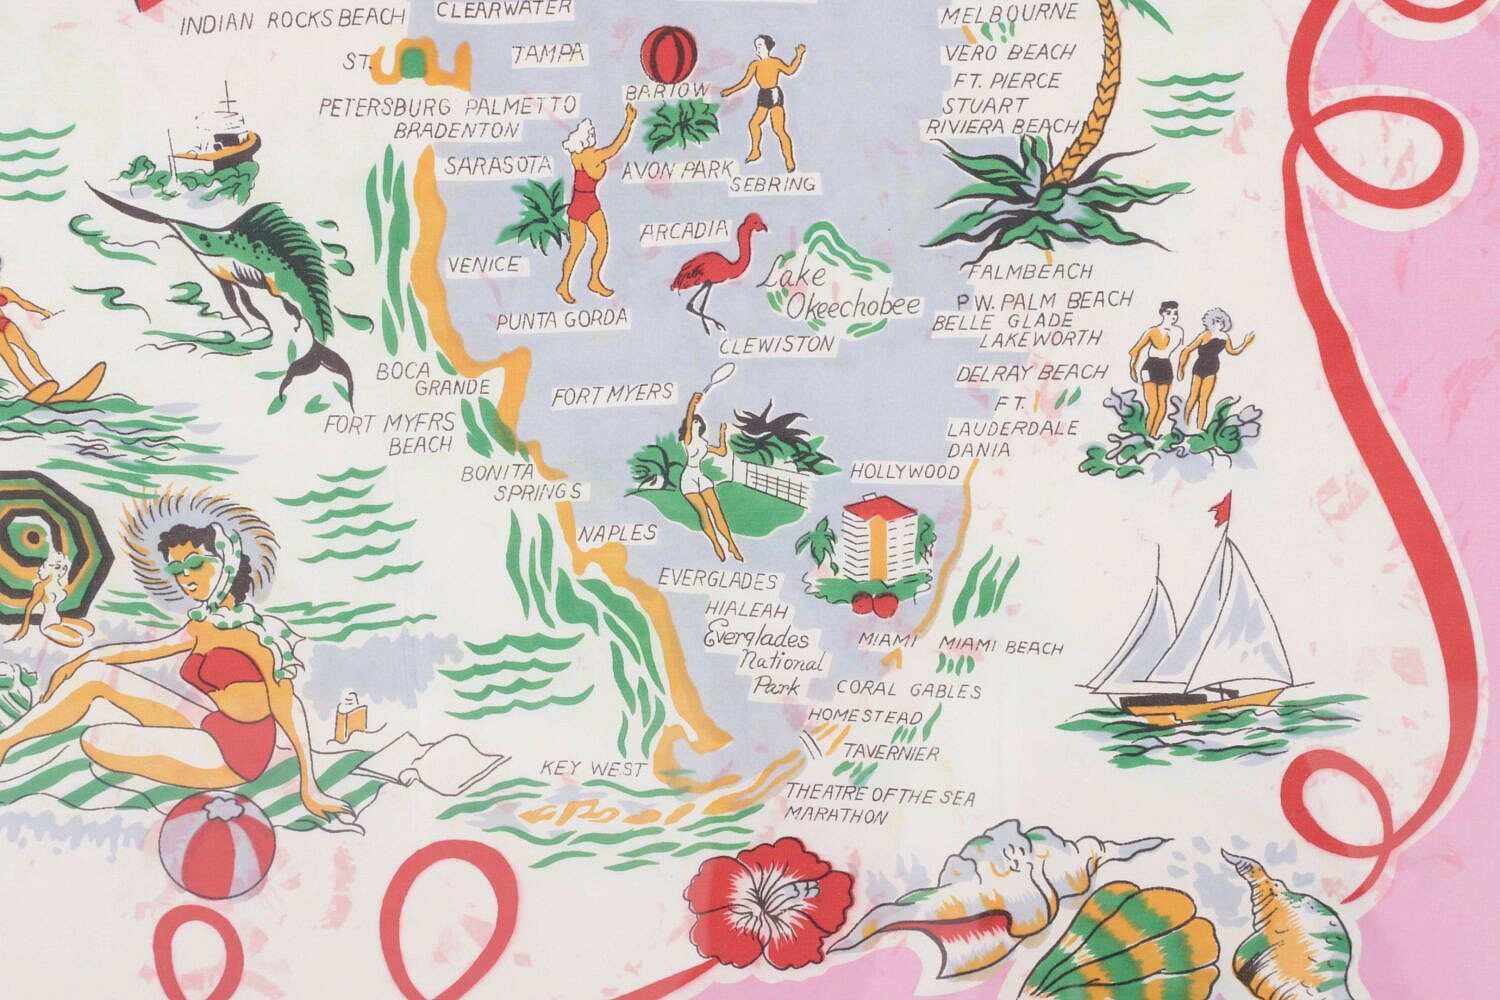 INDIAN ROCKS BEACH
CLEARWATER
ST.
TAMPA
PETERSBURG
PALMETTO
BRADENTON
SARASOTA
BARTOW
AVON PARK
SEBRING
ARCADIA
VENICE
PUNTA GORDA
Lake
Okeechobee
CLEWISTON
BOCA
GRANDE
FORT MYERS
FORT MYERS
BEACH
BONITA
SPRINGS
NAPLES
EVERGLADES
HIALEAH
Everglades
National
Park
KEY WEST
MELBOURNE
VERO BEACH
FT. PIERCE
STUART
RIVIERA BEACH
PALM BEACH
W. PALM BEACH
BELLE GLADE
LAKE WORTH
DELRAY BEACH
FT.
LAUDERDALE
DANIA
HOLLYWOOD
MIAMI
MIAMI BEACH
CORAL GABLES
HOMESTEAD
TAVERNIER
THEATRE OF THE SEA
MARATHON